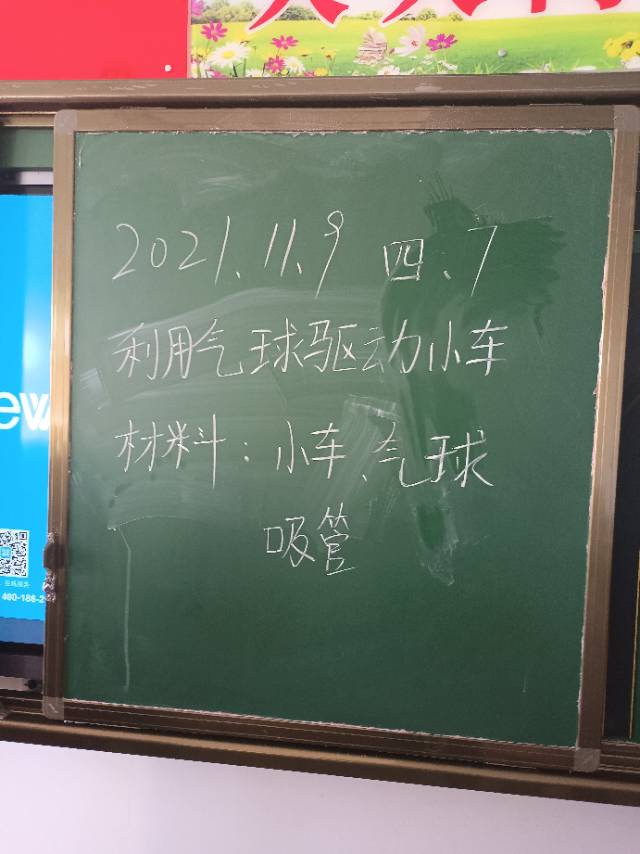 2021.11.9 四.7
利用气球驱动小车
材料：小车、气球
吸管
ew
400-186-2